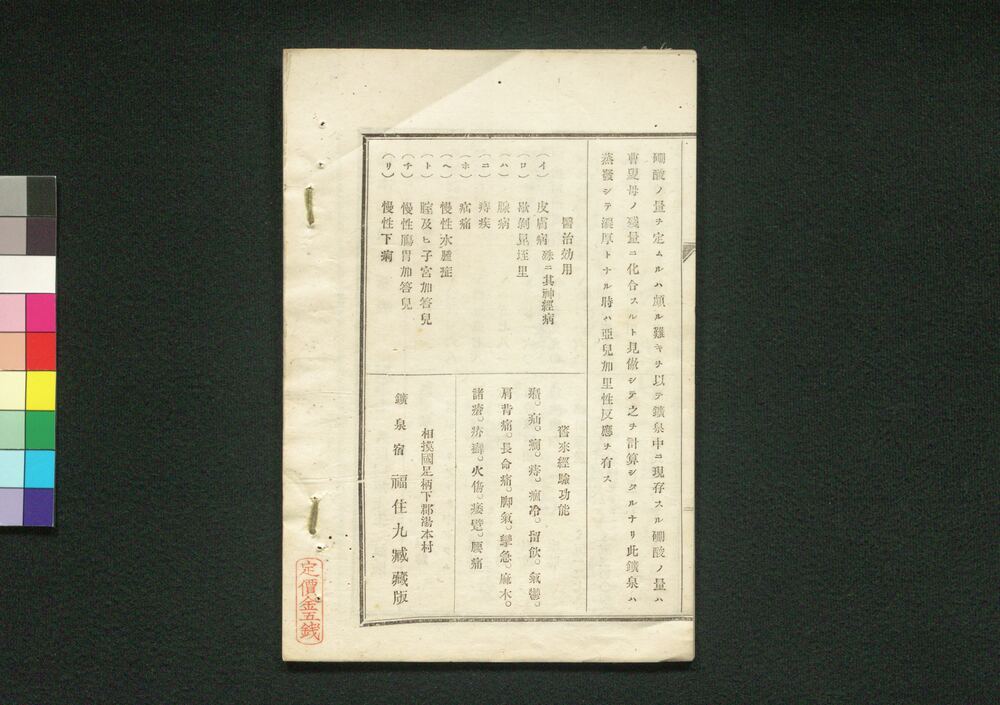 硼酸ノ量ヲ定ムルハ頗ル難キヲ以テ鑛泉中ニ現存スル硼酸ノ量ハ
曹達母ノ殘量ニ化合スルト見做シテ之ヲ計算シタルナリ此鑛泉ハ
蒸發シテ濃厚トナル時ハ亞兒加里性反應ヲ有ス
醫治効用
(イ) 皮膚病 殊ニ其神經病
(ロ) 歇剝昆垤里
(ハ) 腺病
(ニ) 痔疾
(ホ) 疝痛
(ヘ) 慢性水腫症
(ト) 膣及ヒ子宮加答兒
(チ) 慢性膓胃加答兒
(リ) 慢性下痢
舊來經驗功能
癪。疝。痔。冷。留飮。氣鬱。
肩背痛。長命痛。脚氣。攣急。麻木。
諸瘡。疥癬。火傷。痿躄。腰痛
相摸國足柄下郡湯本村
鑛泉宿 福住九藏藏版
定價金五錢